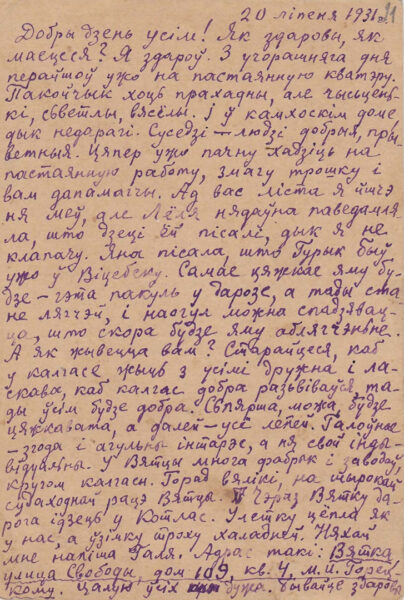 20 ліпеня 1931 г.
Добры дзень усім! Як здаровы, як
маецеся? Я здароў. З учорашняга дня
перайшоў ужо на пастаянную кватэру.
Пакойчык хоць прахадны, але чысьцень-
кі, сьветлы, вясёлы. І ў камхоскім доме,
дык недарагі. Суседзі — людзі добрыя, пры-
ветныя. Цяпер ужо пачну хадзіць на
пастаянную работу, змагу трошку і
вам дапамагчы. Ад вас ліста я йшчэ
ня меў, але Лёля нядаўна паведамля-
ла, што дзеці ёй пісалі, дык я не
клапачу. Яна пісала, што Гурык быў
ужо ў Віцебску. Самае цяжкае яму бу-
дзе — гэта пакуль у дарозе, а тады ста-
не лягчэй, і наогул можна спадзявац-
ца, што скора будзе яму аблягчэньне.
А як жывецца вам? Старайцеся, каб
у калгасе жыць з усімі дружна і ла-
скава, каб калгас добра разьвіваўся, та-
ды ўсім будзе добра. Сьпярша, можа, будзе
цяжкавата, а далей — усё лепей. Галоўнае
— згода і агульны інтарэс, а ня свой інды-
відуальны. У Вятцы многа фабрык і заводаў,
кругом калгасы. Горад вялікі, на шырокай
судаходнай рацэ Вятцы. Чэраз Вятку да-
рога ідзець у Котлас. Улетку цёпла як
у нас, а ўзімку троху халадней. Няхай
мне напіша Галя. Адрас такі: Вятка
улица Свободы, дом 109, кв. 4, М. И. Горец-
кому. Цалую ўсіх дужа. Бывайце здаровы